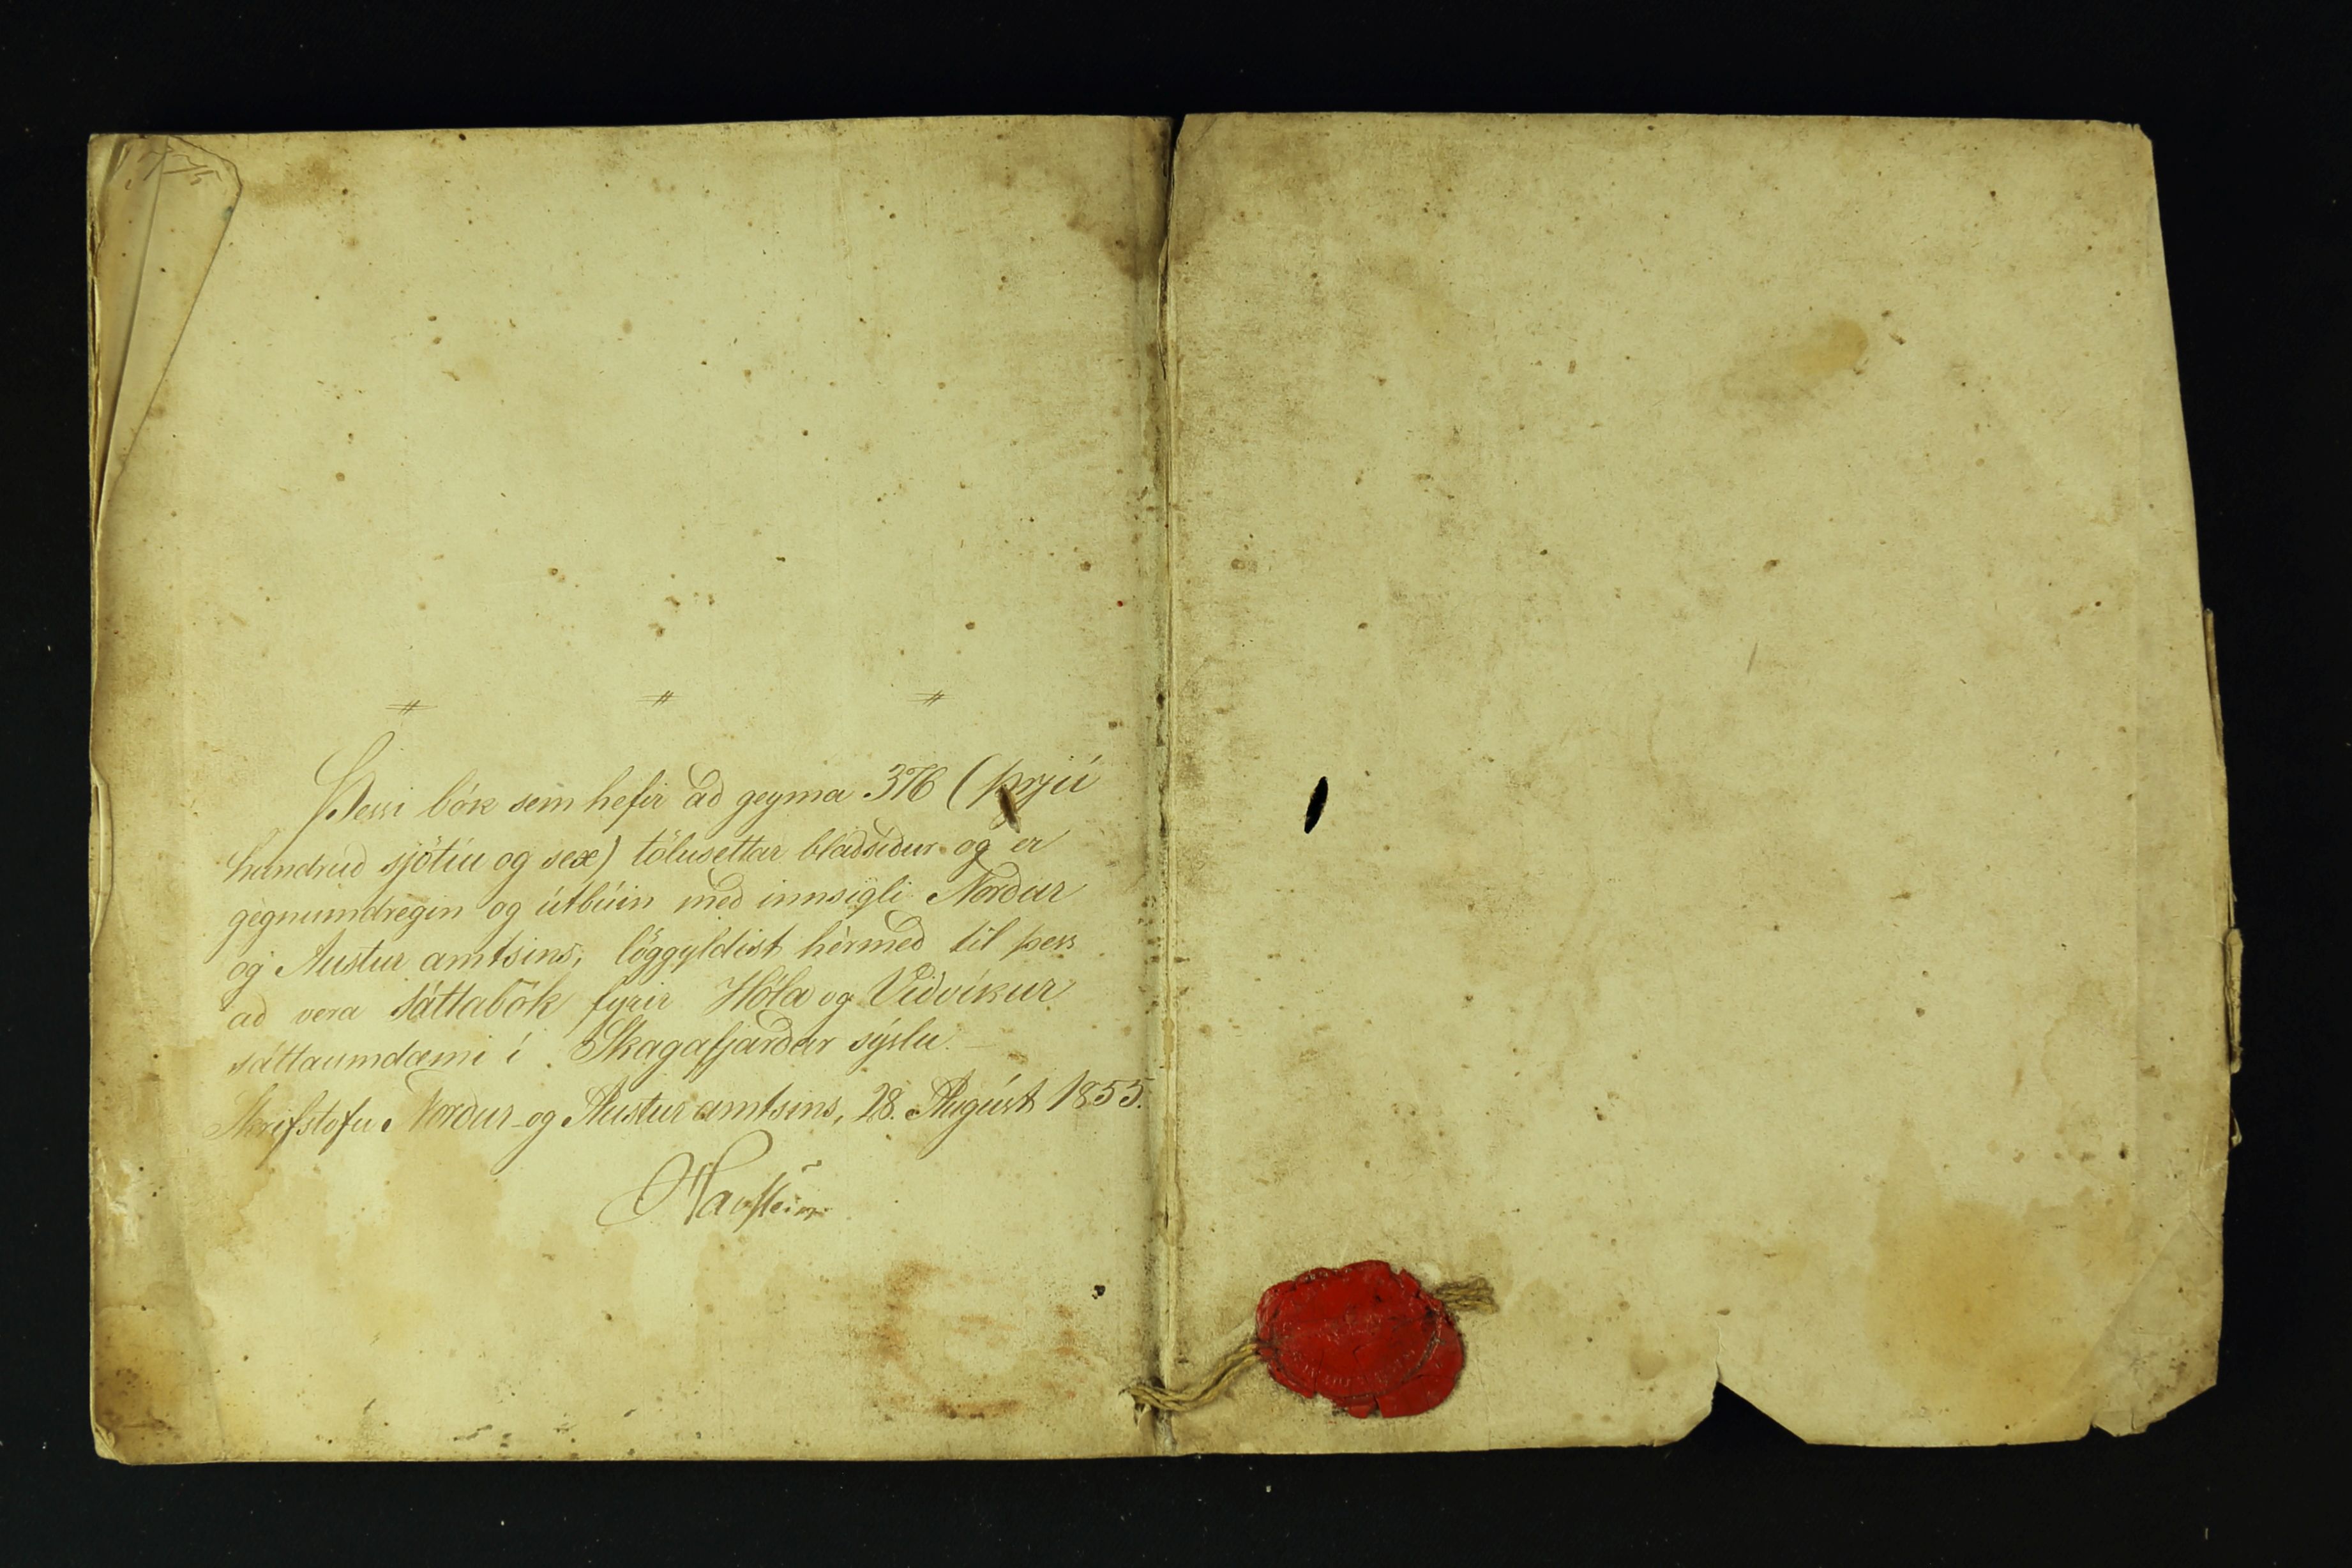 Þessi bók sem hefir að geyma 376 (þrjú
hundruð sjötíu og sex) tölusettar blaðsíður og er
gegnumdregin og útbúin með innsigli Norður
og Austur amtsins, löggyldist hérmeð til þess
að vera sáttabók fyrir Hóla og Viðvíkur
sáttaumdæmi í Skagafjarðar sýslu. —
Skrifstofu Norður- og Austur amtsins, 28. Ágúst 1855.
Havstein